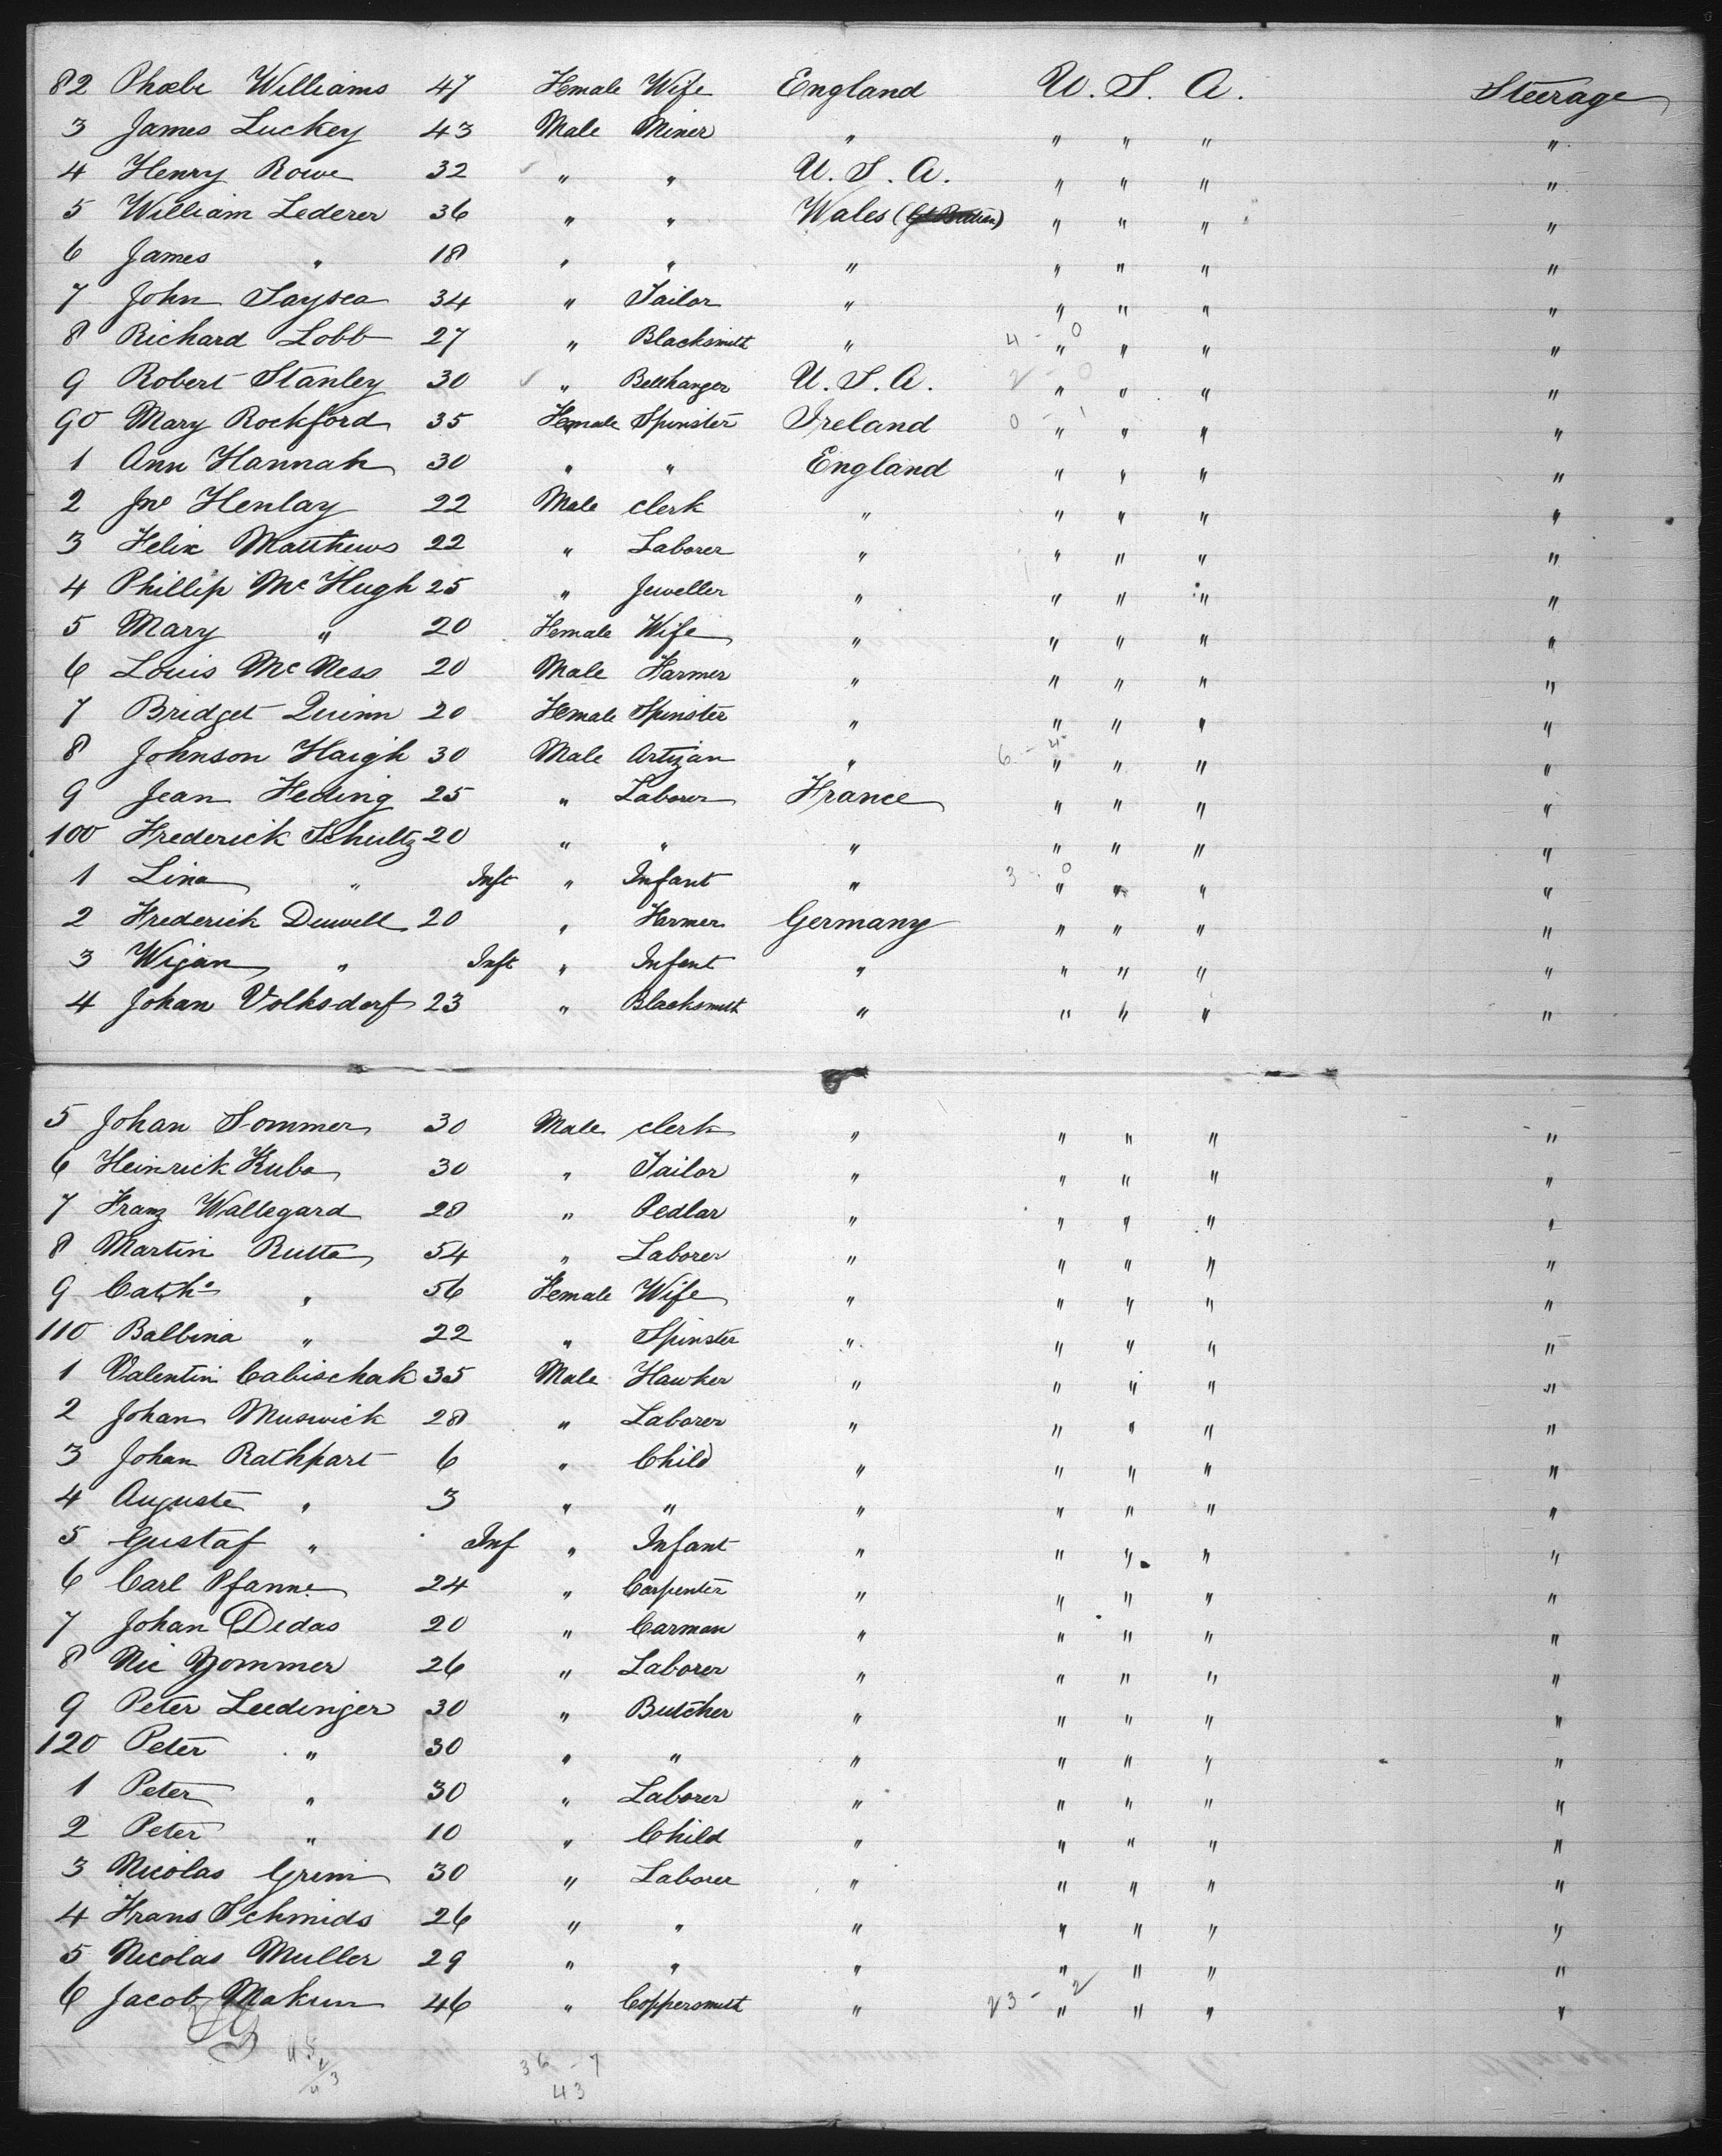 82 Phœbe Williams 47 Female Wife England U. S. A. Steerage
3 James Luckey 43 Male Miner " " " " "
4 Henry Rowe 32 ✓ " " U. S. A. " " " "
5 William Lederer 36 " " Wales ( ) " " " "
6 James " 18 " " " " " " "
7 John Saysea 34 " Tailor " " " " "
8 Richard Lobb 27 " Blacksmith " 4 - 0 " " " "
9 Robert Stanley 30 ✓ " Bellhanger U. S. A. 2 - 0 " " " "
90 Mary Rockford 35 Female Spinster Ireland 0 - 1 " " " "
1 Ann Hannah 30 " " England " " " "
2 Jno Henlay 22 Male clerk " " " " "
3 Felix Matthews 22 " Laborer " " " " "
4 Phillip McHugh 25 " Jeweller " " " " "
5 Mary " 20 Female Wife " " " " "
6 Louis McNess 20 Male Farmer " " " " "
7 Bridget Quinn 20 Female Spinster " " " " "
8 Johnson Haigh 30 Male Artizan " 6 - 4 " " " "
9 Jean Heding 25 " Laborer France " " " "
100 Frederick Schultz 20 " " " " " " "
1 Lina " Inft " Infant " 3 - 0 " " " "
2 Frederick Duwell 20 " Farmer Germany " " " "
3 Wijan " Inft " Infant " " " " "
4 Johan Volksdorf 23 " Blacksmith " " " " "
5 Johan Sommer 30 Male clerk " " " " "
6 Heinrick Kuba 30 " Tailor " " " " "
7 Franz Wallegard 28 " Pedlar " " " " "
8 Martin Rutta 54 " Laborer " " " " "
9 Catha " 56 Female Wife " " " " "
110 Balbina " 22 " Spinster " " " " "
1 Valentin Cabischak 35 Male Hawker " " " " "
2 Johan Muswick 28 " Laborer " " " " "
3 Johan Rathpart 6 " Child " " " " "
4 Auguste " 3 " " " " " " "
5 Gustaf " Inf " Infant " " " " "
6 Carl Pfanne 24 " Carpenter " " " " "
7 Johan Dedas 20 " Carman " " " " "
8 Nic Yommer 26 " Laborer " " " " "
9 Peter Leedinger 30 " Butcher " " " " "
120 Peter " 30 " " " " " " "
1 Peter " 30 " Laborer " " " " "
2 Peter " 10 " Child " " " " "
3 Nicolas Grim 30 " Laborer " " " " "
4 Frans Schmids 26 " " " " " " "
5 Nicolas Muller 29 " " " " " " "
6 Jacob Makun 46 " Coppersmith " 23 - 2 " " " "
45 36 - 7
2
43 43